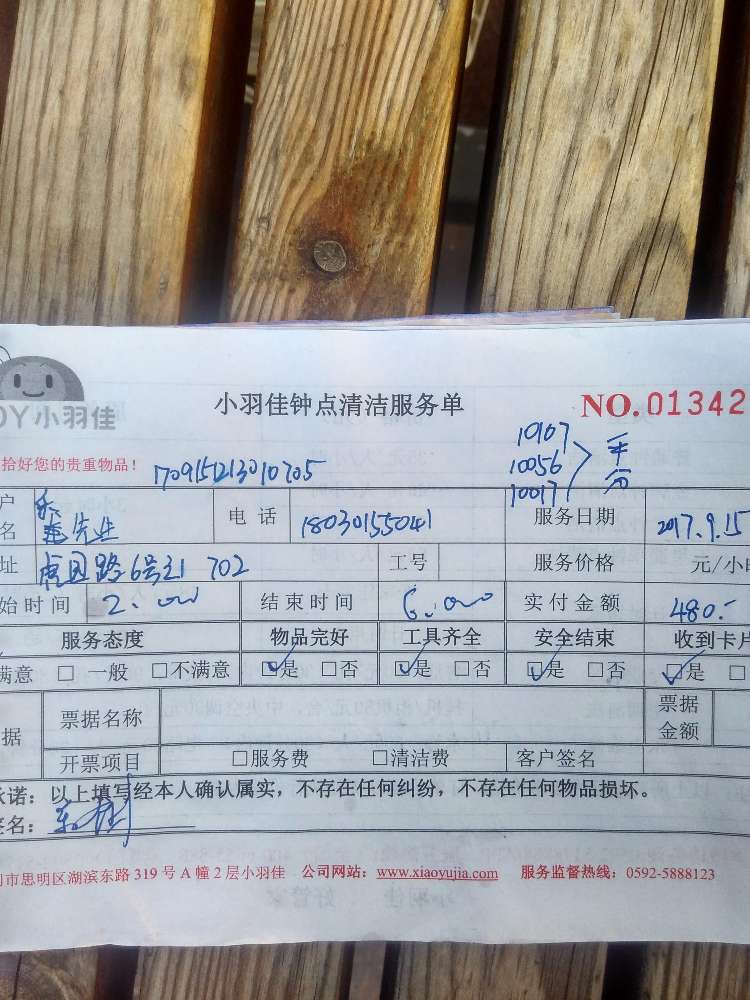 OY小羽佳
小羽佳钟点清洁服务单 NO.01342
拾好您的贵重物品! 17091521301070​5
10107
10056 平分
10017
户名 先生 电话 18030155041 服务日期 2017.9.15
址 虎园路6号之1 702 工号 服务价格 元/小时
始时间 2:00 结束时间 6:00 实付金额 480.-
服务态度 物品完好 工具齐全 安全结束 收到卡片
满意 □一般 □不满意 ☑是 □否 ☑是 □否 ☑是 □否 ☑是 □
据 票据名称 票据金额
开票项目 □服务费 □清洁费 客户签名
承诺：以上填写经本人确认属实，不存在任何纠纷，不存在任何物品损坏。
签名：
门市思明区湖滨东路 319 号 A 幢 2 层小羽佳 公司网站：www.xiaoyujia.com 服务监督热线：0592-5888123